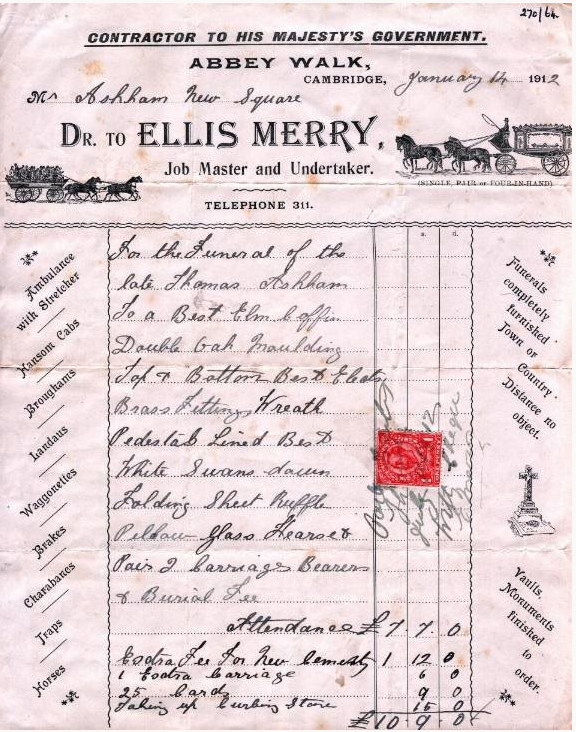 270/64.
CONTRACTOR TO HIS MAJESTY'S GOVERNMENT.
ABBEY WALK,
CAMBRIDGE, January 14 1912
Mr Ashham New Square
DR. TO ELLIS MERRY,
Job Master and Undertaker.
(SINGLE, PAIR or FOUR-IN-HAND)
TELEPHONE 311.
s. d.
Ambulance
with Stretcher
Hansom Cabs
Broughams
Landaus
Waggonettes
Brakes
Charabancs
Traps
Horses
For the Funeral of the
late Thomas Ashham
To a Best Elm Coffin
Double Oak Moulding
Top & Bottom Best Elects
Brass Fittings Wreath
Pedestals Lined Best
White Swans-down
Folding Sheet Ruffle
Pillow Glass Hearse &
Pair 2 Carriages Bearers
& Burial Fee
Attendance £7 7. 0
Esdra Fee For New Cemesty 1 12 0
1 Esdra Carriage 6 0
25 Cards 9 0
Taking up Curbing Stone 15 0
£10 - 9 . 0
Funerals
completely
furnished
Town or
Country.
Distance no
object.
Vaults,
Monuments
finished
to
order.